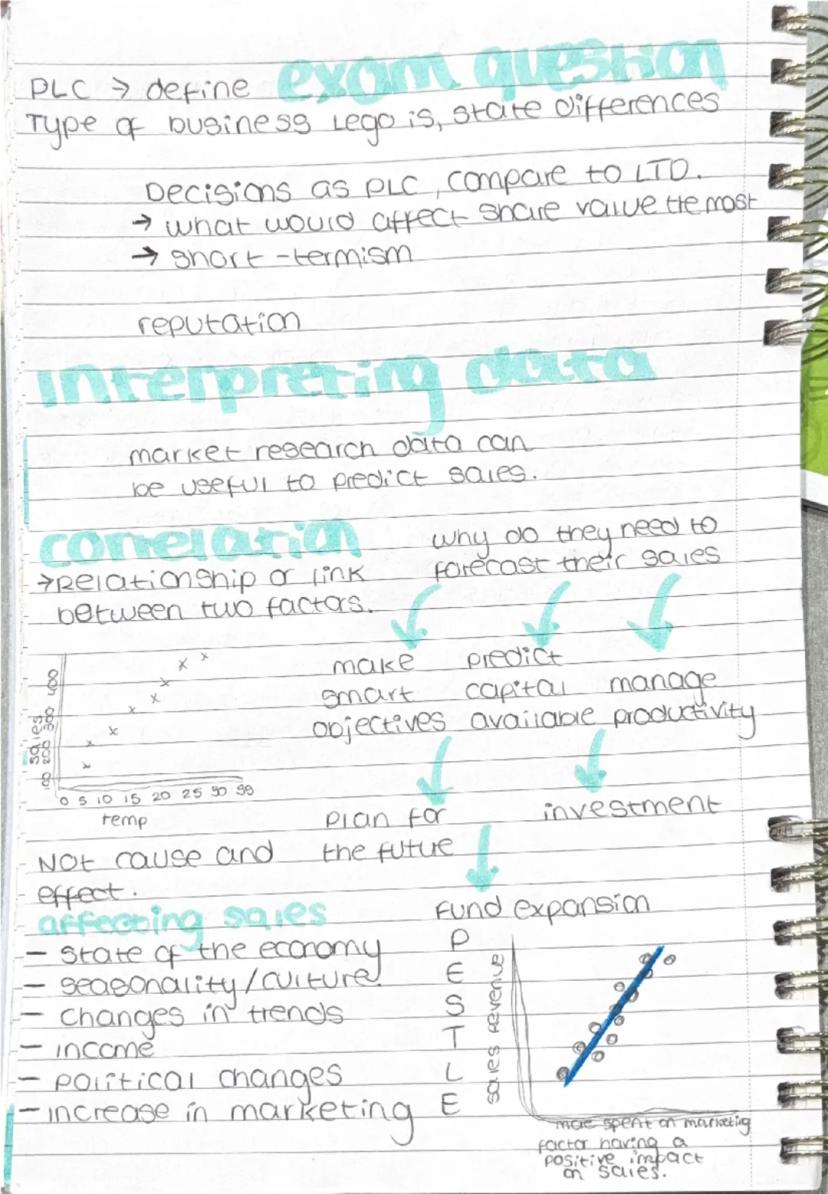 exam question
PLC → define
Type of business Lego is, state differences
Decisions as PLC, compare to LTD.
→ what would affect share value the most
→ short-termism
reputation
Interpreting data
market research data can
be useful to predict sales.
correlation
→Relationship or link
between two factors.
why do they need to
forecast their sales
make
smart
objectives
predict
capital
available
manage
productivity
plan for
the future
investment
Fund expansion
sales
100 200 300 400
0 5 10 15 20 25 30
temp
NOT cause and
effect.
affecting sales
- state of the economy
- seasonality/culture
- changes in trends
- income
- political changes
- increase in marketing
P
E
S
T
L
E
sales revenue
more spent on marketing
factor having a
positive impact
on sales.